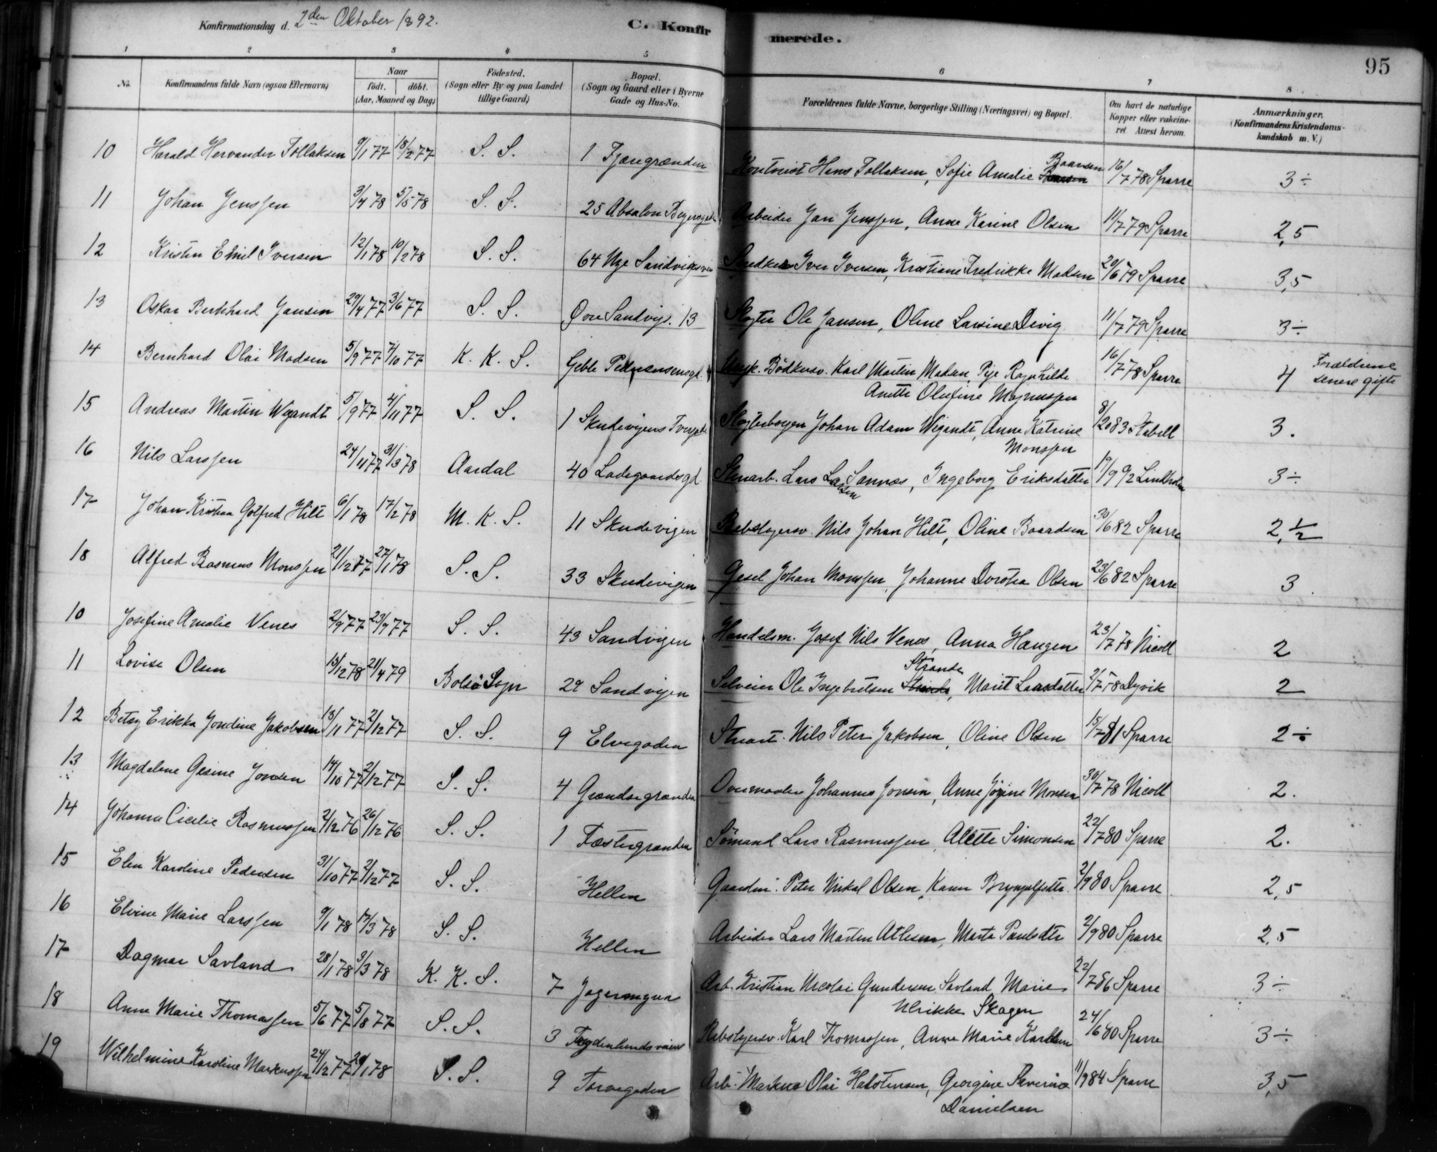 Konfirmationsdag d. 2den Oktober 1892.
C. Konfirmerede.
95
1 2 3 4 5 6 7 8
No. Konfirmandens fulde Navn (ogsaa Efternavn) Naar født. døbt. (Aar, Maaned og Dag) Fødested. (Sogn eller By og paa Landet tillige Gaard) Bopæl. (Sogn og Gaard eller i Byerne Gade og Hus-No. Forældrenes fulde Navne, borgerlige Stilling (Næringsvei) og Bopæl. Om havt de naturlige Kopper eller vaccineret Attest herom. Anmærkninger. (Konfirmandens Kristendomskundskab m. V.)
10 Harald Hervander Tollaksen 9/1 77 18/2 77 S. S. 1 Hans Tollaksen, Sofie Amalie Baarsen 16/7 78 Sparre 3÷
11 Johan Jenssen 3/4 78 5/5 78 S. S. 25 Absalon Arbeider Jan Jenssen, Anne Karine Olsen 11/7 79 Sparre 2,5
12 Kristen Emil Iversen 12/1 78 10/2 78 S. S. 64 Nye Sandvigsvei Iver Iversen, Kristiane Fredrikke Madsen 20/6 79 Sparre 3,5
13 Oskar Bernhard Jansen 29/4 77 3/6 77 S. S. Øvre Sandvigs. 13 Ole Jansen, Oline Lavine Devig 11/7 79 Sparre 3÷
14 Bernhard Olai Madsen 5/9 77 7/10 77 K. K. S. Geble Pedersensgd. Ungk. Bødkersv. Karl Martin Madsen, Pige Ragnhilde
Anette Olufine Magnussen 16/7 78 Sparre 4 Forældrene senere gifte
15 Andreas Martin Wigandt 5/9 77 4/11 77 S. S. 1 Skudevigens Johan Adam Wigandt, Anne Katrine
Monssen 8/2 83 Stabell 3.
16 Nils Larssen 24/11 77 31/3 78 Aardal 40 Ladegaardsgd Stenarb. Lars Larsen Sannæs, Ingeborg Eriksdatter 19/9 92 Lindholm 3÷
17 Johan Kristian Gotfred Hilt 6/1 78 17/2 78 M. K. S. 11 Skudevigen Rebslagersv. Nils Johan Hilt, Oline Baardsen 30/6 82 Sparre 2,½
18 Alfred Rasmus Monssen 21/12 77 27/1 78 S. S. 33 Skudevigen Johan Monssen, Johanne Dorothea Olsen 23/6 82 Sparre 3
10 Josefine Amalie Venes 2/9 77 23/9 77 S. S. 43 Sandvigen Handelsm. Josef Nils Venes, Anna Haugen 23/7 78 Nicoll 2
11 Lovise Olsen 15/12 78 21/4 79 Bolsø Sogn 27 Sandvigen Ole Ingebrigtsen Strande, Marit Larsdatter Dyvik 2
12 Betsy Erikka Jondine Jakobsen 13/11 77 2/12 77 S. S. 9 Elvegaden Stuart Nils Peter Jakobsen, Oline Olsen 15/7 81 Sparre 2÷
13 Magdalene Gesine Jonsen 14/10 77 2/12 77 S. S. 4 Johannes Jonsen, Anne Monsen 30/7 78 Nicoll 2.
14 Johanna Cicilie Rasmussen 2/12 76 26/12 76 S. S. 1 Sømand Lars Rasmussen, Alette Simonsen 22/7 80 Sparre 2.
15 Elen Karoline Pedersen 31/10 77 2/12 77 S. S. Hellen Gaardm. Peter Mikal Olsen, 2/9 80 Sparre 2,5
16 Elvine Marie Larssen 9/1 78 17/3 78 S. S. Hellen Arbeider Lars Martin Atlesen, Marta 2/9 80 Sparre 2,5
17 Dagmar Savland 28/1 78 3/3 78 K. K. S. 7 Arb. Kristian Nicolai Gundersen Savland, Marie
Ulrikke Skagen 22/7 86 Sparre 3÷
18 Anne Marie Thomassen 5/6 77 5/8 77 S. S. 3 Rebslagersv. Karl Thomassen, Anne Marie Karlsen 24/6 80 Sparre 3÷
19 Wilhelmine Karoline Markussen 24/12 77 20/1 78 S. S. 9 Torvegaden Arb. Markus Olai Halstensen, Georgine Severine
Danielsen 11/9 84 Sparre 3,5